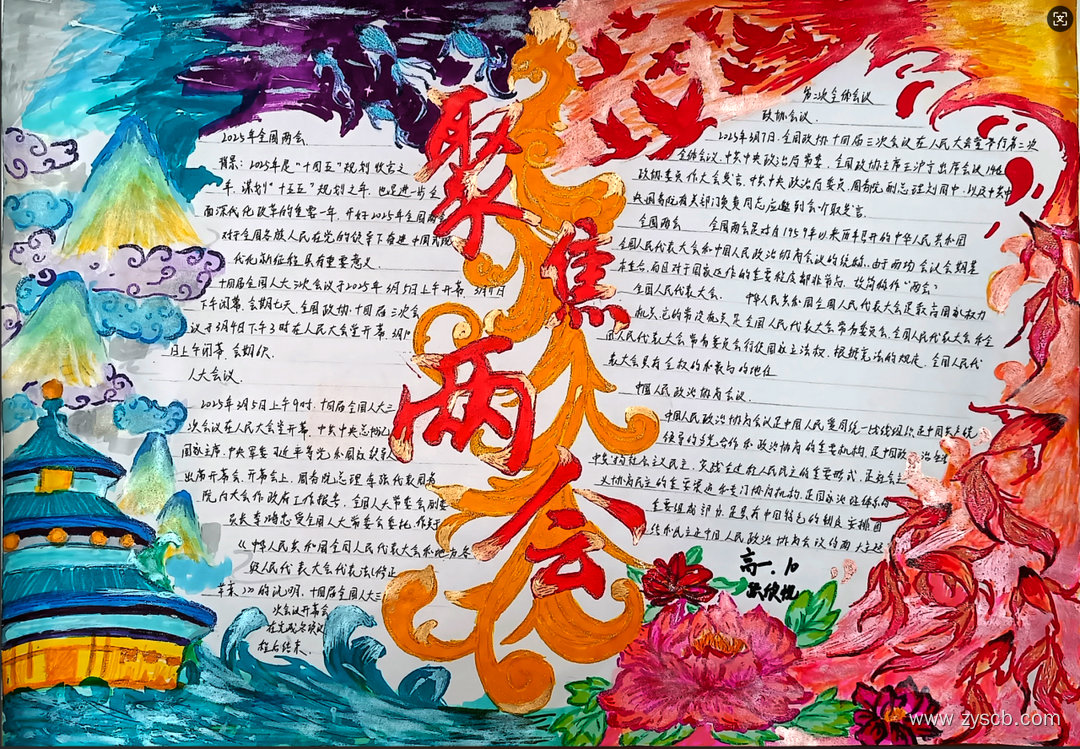 聚焦两会
2025年全国两会.
背景：2025年是“十四五”规划收官之
年，谋划“十五五”规划之年，也是进一步全
面深代化改革的重要一年，开好2025年全国两会
对于全国各族人民在党的领导下奋进中国式现
代化新征程具有重要意义.
十四届全国人大三次会议于2025年3月5日上午开幕，3月11日
下午闭幕，会期七天，全国政协十四届三次会
议于3月4日下午3时在人民大会堂开幕，3月
日上午闭幕，会期6天.
人大会议.
2025年3月5日上午9时，十四届全国人大三
次会议在人民大会堂开幕，中共中央总书记
国家主席、中央军委主席习近平等党和国家领导人
出席开幕会，开幕会上，国务院总理李强代表国务
院向大会作政府工作报告，全国人大常委会副委
员长李鸿忠受全国人大常委会委托，作关于
《中华人民共和国全国人民代表大会和地方各
级人民代表大会代表法（修正
草案）》的说明，十四届全国人大三
次会议开幕会
在完成各项议
程后结束.
第二次全体会议
政协会议.
2025年3月7日，全国政协十四届三次会议在人民大会堂举行第二次
全体会议，中共中央政治局常委、全国政协主席王沪宁出席会议，14位
政协委员作大会发言，中共中央政治局委员、国务院副总理刘国中，以及中共中
央国务院有关部门负责同志应邀到会听取发言.
全国两会 全国两会是对自1959年以来历年召开的中华人民共和国
全国人民代表大会和中国人民政治协商会议的统称，由于两场会议会期基
本重合，而且对于国家运作的重要程度都非常高，故简称作“两会”
全国人民代表大会. 中华人民共和国全国人民代表大会是最高国家权力
机关，它的常设机关是全国人民代表大会常务委员会，全国人民代表大会和全
国人民代表大会常务委员会行使国家立法权，根据宪法的规定，全国人民代
表大会具有全权的和最高的地位
中国人民政治协商会议.
中国人民政治协商会议是中国人民爱国统一战线组织，是中国共产党
领导的多党合作和政治协商的重要机构，是中国政治生活
中发扬社会主义民主，实践全过程人民民主的重要形式，是社会主
义协商民主的重要渠道和专门协商机构，是国家治理体系的
重要组成部分，是具有中国特色的制度安排，团
结和民主是中国人民政治协商会议的两大主题
高一.10
www.zyscb.com